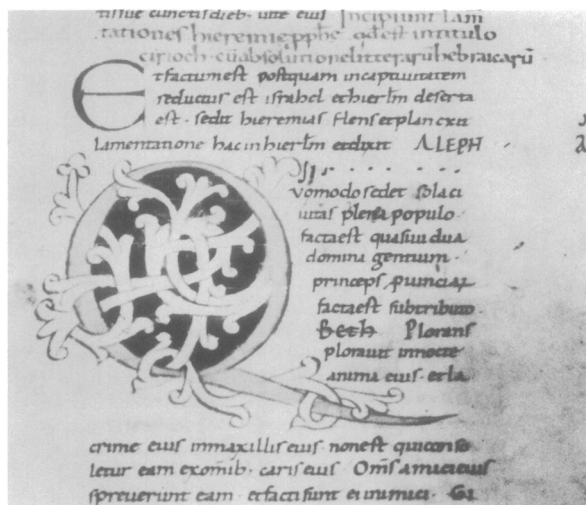 cunctis dieb· uite eius Incipiunt lam
tationes hieremie pphe qd est intitulo
cirioch· cū absolutione litterarū hebraicarū
Et factum est postquam incaptiuitatem
reductus est israhel et hierlm̄ deserta
est· sedit hieremias flens et planxit
lamentatione hac in hierlm̄ et dixit ALEPH
Quomodo sedet sola ci
uitas plena populo·
facta est quasi uidua
domina gentium·
princeps
facta est sub tributo
Beth Plorans
plorauit in nocte
anima eius· et la
crime eius in maxillis eius· non est qui conso
letur eam ex om̄ib· caris eius Om̄s amici eius
spreuerunt eam· et facti sunt ei inimici· Gi